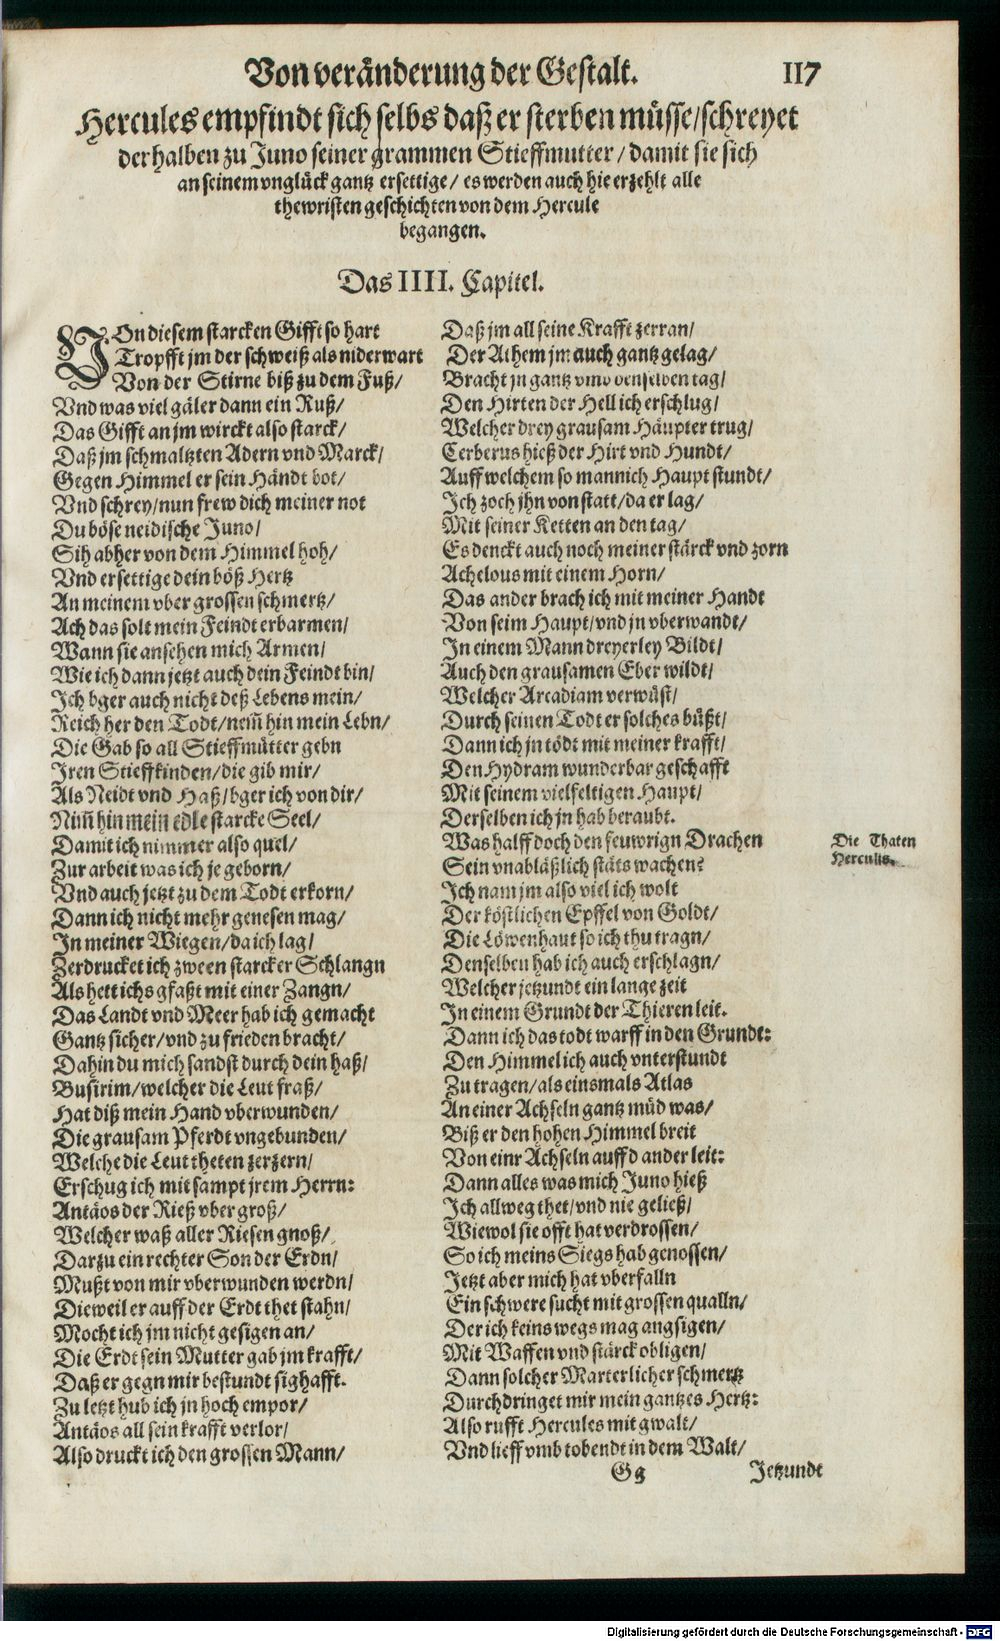 Von veränderung der Gestalt. 117
Hercules empfindt sich selbs daß er sterben müsse/schreyet
derhalben zu Juno seiner grammen Stieffmutter/ damit sie sich
an seinem vnglück gantz ersettige/ es werden auch hie erzehlt alle
thewristen geschichten von dem Hercule
begangen.
Das IIII. Capitel.
VOn diesem starcken Gifft so hart
Tropfft jm der schweiß als niderwart
Von der Stirne biß zu dem Fuß/
Vnd was viel gäler dann ein Ruß/
Das Gifft an jm wirckt also starck/
Daß jm schmaltzten Adern vnd Marck/
Gegen Himmel er sein Händt bot/
Vnd schrey/nun frew dich meiner not
Du böse neidische Juno/
Sih abher von dem Himmel hoh/
Vnd ersettige dein böß Hertz
An meinem vber grossen schmertz/
Ach das solt mein Feindt erbarmen/
Wann sie ansehen mich Armen/
Wie ich dann jetzt auch dein Feindt bin/
Ich bger auch nicht deß Lebens mein/
Reich her den Todt/nem̃ hin mein Lebn/
Die Gab so all Stieffmütter gebn
Iren Stieffkinden/die gib mir/
Als Neidt vnd Haß/bger ich von dir/
Nim̃ hin mein edle starcke Seel/
Damit ich nimmer also quel/
Zur arbeit was ich je geborn/
Vnd auch jetzt zu dem Todt erkorn/
Dann ich nicht mehr genesen mag/
In meiner Wiegen/da ich lag/
Zerdrucket ich zween starcker Schlangn
Als hett ichs gfaßt mit einer Zangn/
Das Landt vnd Meer hab ich gemacht
Gantz sicher/vnd zu frieden bracht/
Dahin du mich sandst durch dein haß/
Busirim/welcher die Leut fraß/
Hat diß mein Hand vberwunden/
Die grausam Pferdt vngebunden/
Welche die Leut theten zerzern/
Erschug ich mit sampt jrem Herrn:
Antäos der Rieß vber groß/
Welcher waß aller Riesen gnoß/
Darzu ein rechter Son der Erdn/
Mußt von mir vberwunden werdn/
Dieweil er auff der Erdt thet stahn/
Mocht ich jm nicht gesigen an/
Die Erdt sein Mutter gab jm krafft/
Daß er gegn mir bestundt sighafft.
Zu letzt hub ich jn hoch empor/
Antäos all sein krafft verlor/
Also druckt ich den grossen Mann/
Daß jm all seine Krafft zerran/
Der Athem jm auch gantz gelag/
Bracht jn gantz vmb denselben tag/
Den Hirten der Hell ich erschlug/
Welcher drey grausam Häupter trug/
Cerberus hieß der Hirt vnd Hundt/
Auff welchem so mannich Haupt stundt/
Ich zoch jhn von statt/da er lag/
Mit seiner Ketten an den tag/
Es denckt auch noch meiner stärck vnd zorn
Achelous mit einem Horn/
Das ander brach ich mit meiner Handt
Von seim Haupt/vnd jn vberwandt/
In einem Mann dreyerley Bildt/
Auch den grausamen Eber wildt/
Welcher Arcadiam verwüst/
Durch seinen Todt er solches büßt/
Dann ich jn tödt mit meiner krafft/
Den Hydram wunderbar geschafft
Mit seinem vielfeltigen Haupt/
Derselben ich jn hab beraubt.
Was halff doch den feuwrign Drachen
Sein vnabläßlich stäts wachen?
Ich nam jm also viel ich wolt
Der köstlichen Epffel von Goldt/
Die Löwenhaut so ich thu tragn/
Denselben hab ich auch erschlagn/
Welcher jetzundt ein lange zeit
In einem Grundt der Thieren leit.
Dann ich das todt warff in den Grundt:
Den Himmel ich auch vnterstundt
Zu tragen/als einsmals Atlas
An einer Achseln gantz müd was/
Biß er den hohen Himmel breit
Von einr Achseln auff d ander leit:
Dann alles was mich Juno hieß
Ich allweg thet/vnd nie geließ/
Wiewol sie offt hat verdrossen/
So ich meins Siegs hab genossen/
Jetzt aber mich hat vberfalln
Ein schwere sucht mit grossen qualln/
Der ich keins wegs mag angsigen/
Mit Waffen vnd stärck obligen/
Dann solcher Marterlicher schmertz
Durchdringet mir mein gantzes Hertz:
Also rufft Hercules mit gwalt/
Vnd lieff vmb tobendt in dem Walt/
Die Thaten
Herculis.
Gg Jetzundt
Digitalisierung gefördert durch die Deutsche Forschungsgemeinschaft - DFG